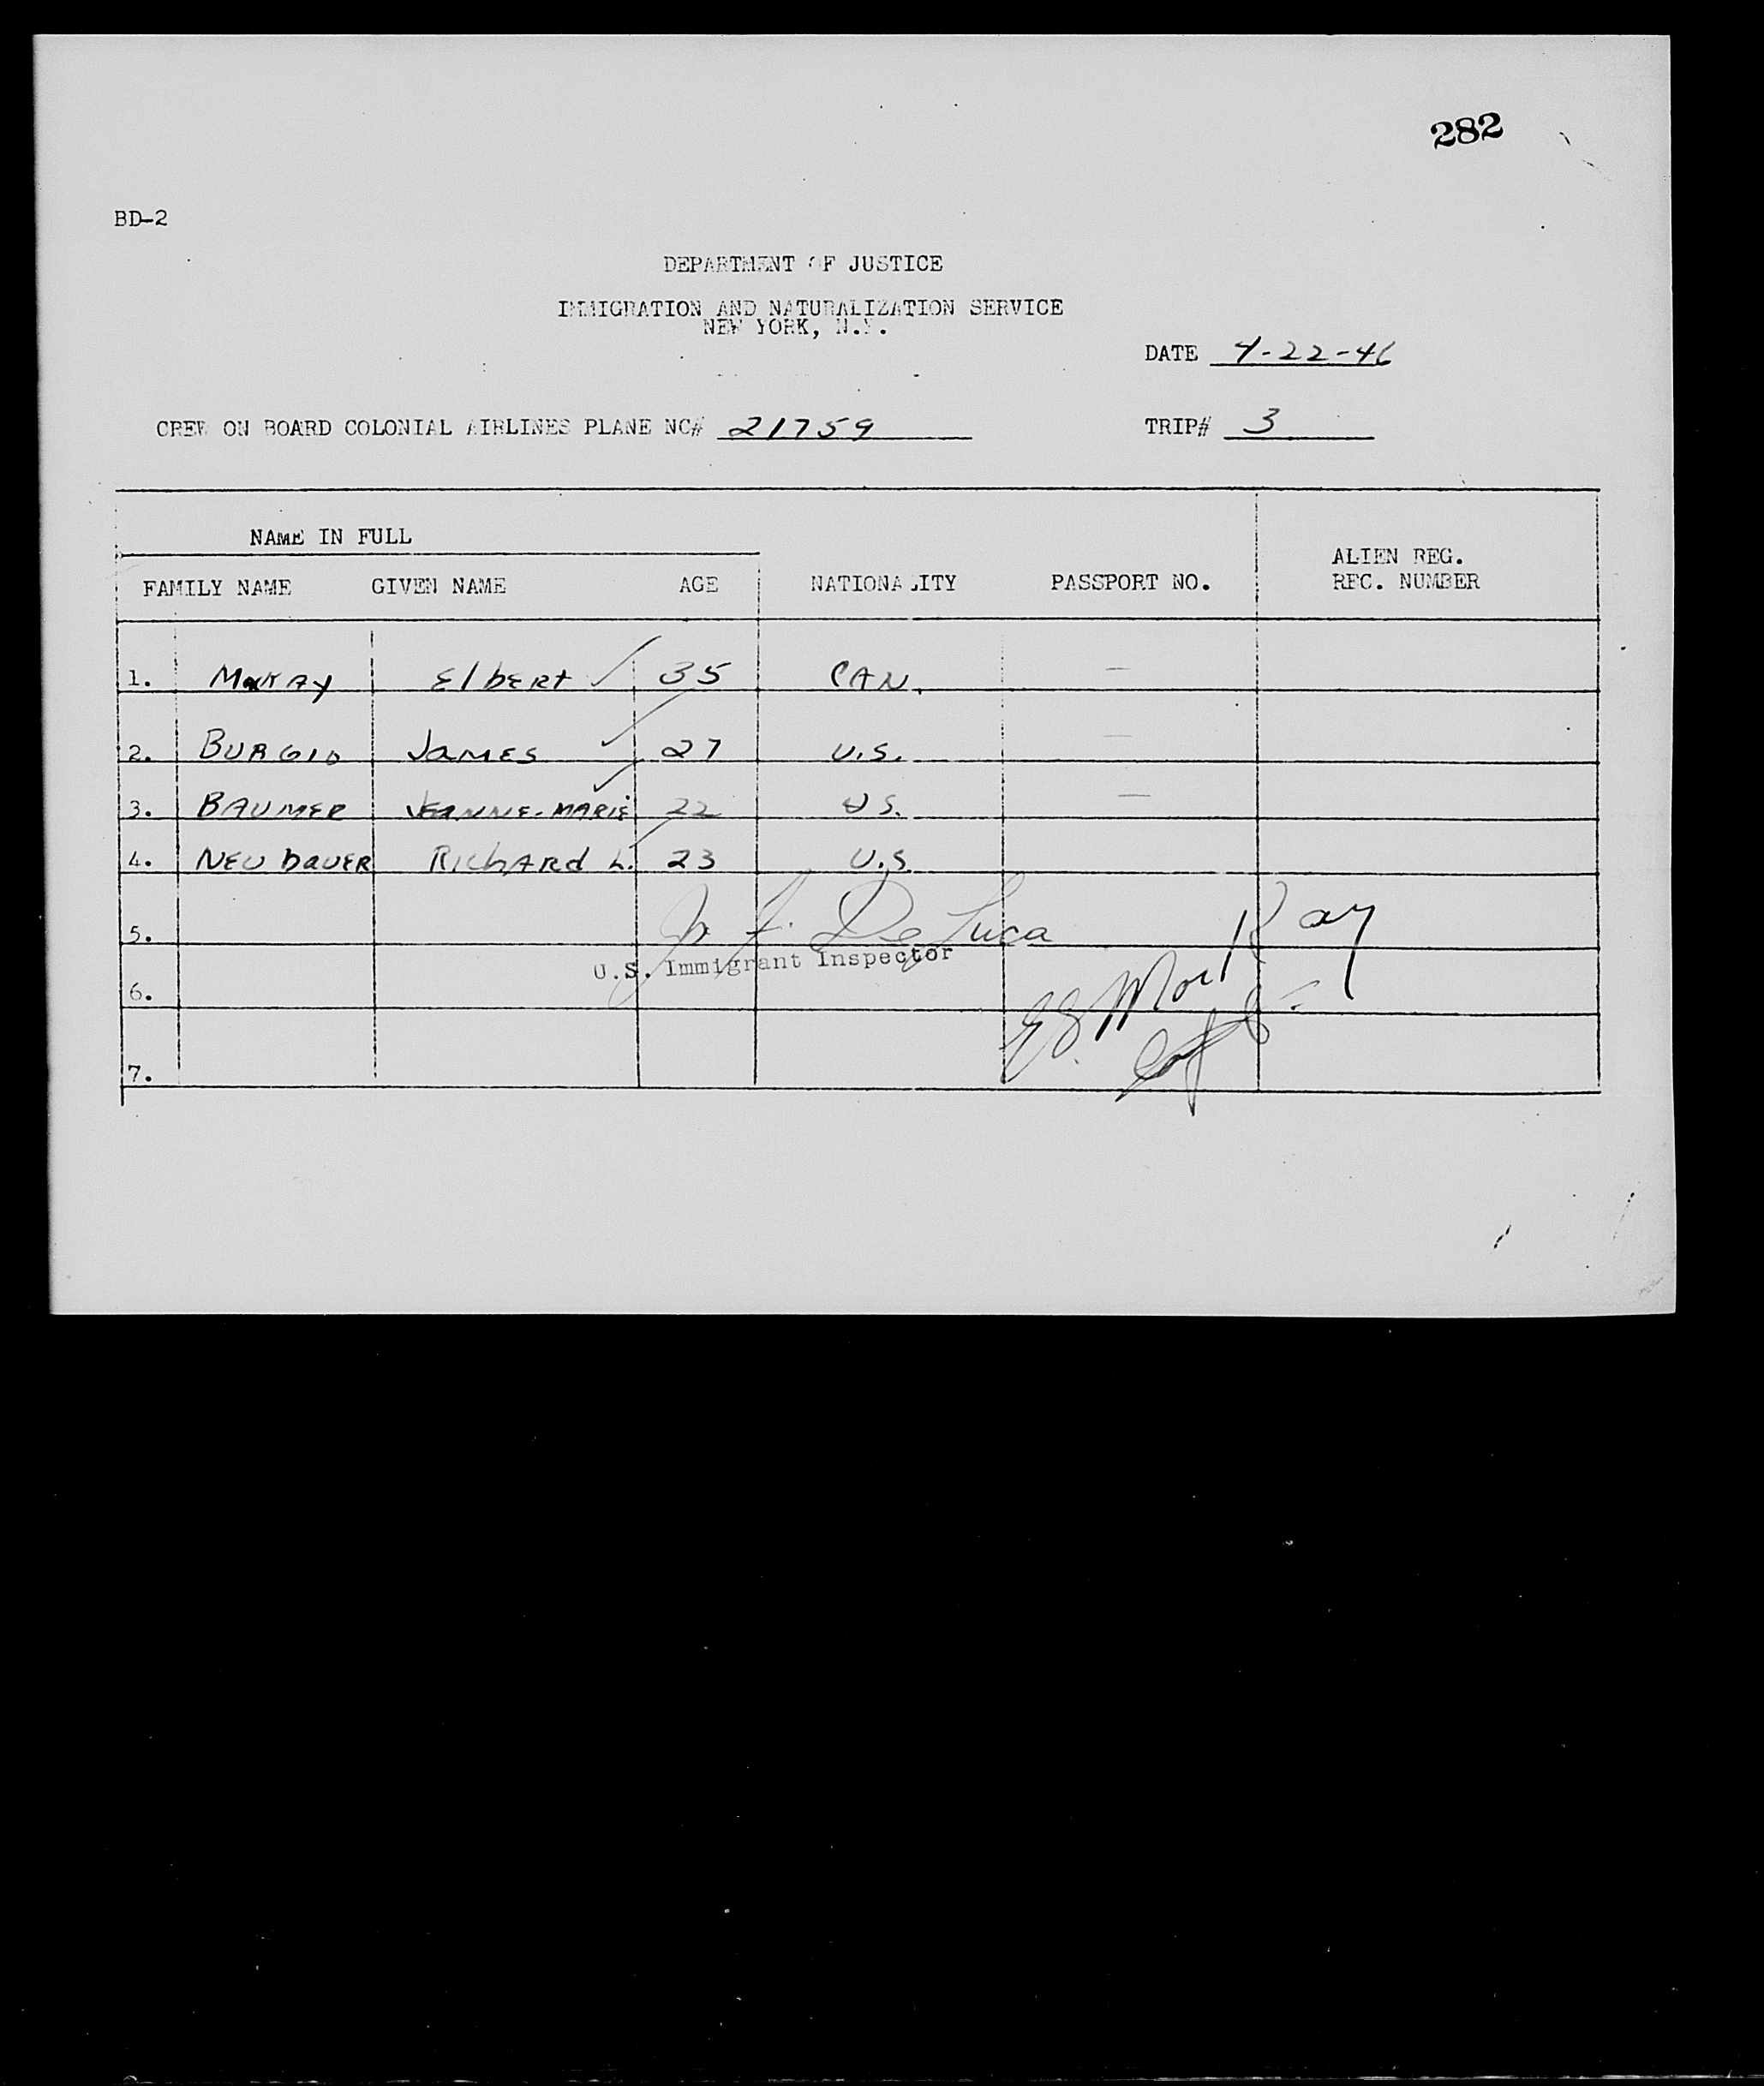 282
BD-2
DEPARTMENT OF JUSTICE
IMMIGRATION AND NATURALIZATION SERVICE
NEW YORK, N.Y.
DATE 4-22-46
CREW ON BOARD COLONIAL AIRLINES PLANE NC# 21759 TRIP# 3
NAME IN FULL
ALIEN REG.
FAMILY NAME GIVEN NAME AGE NATIONALITY PASSPORT NO. REC. NUMBER
1. Elbert 35 CAN. —
2. BURGIO JAMES 27 U.S. —
3. BAUMER JEANNE-MARIE 22 U.S. —
4. NEUbauER RichARd L. 23 U.S.
De Luca
5.
U.S. Immigrant Inspector
6.
7.